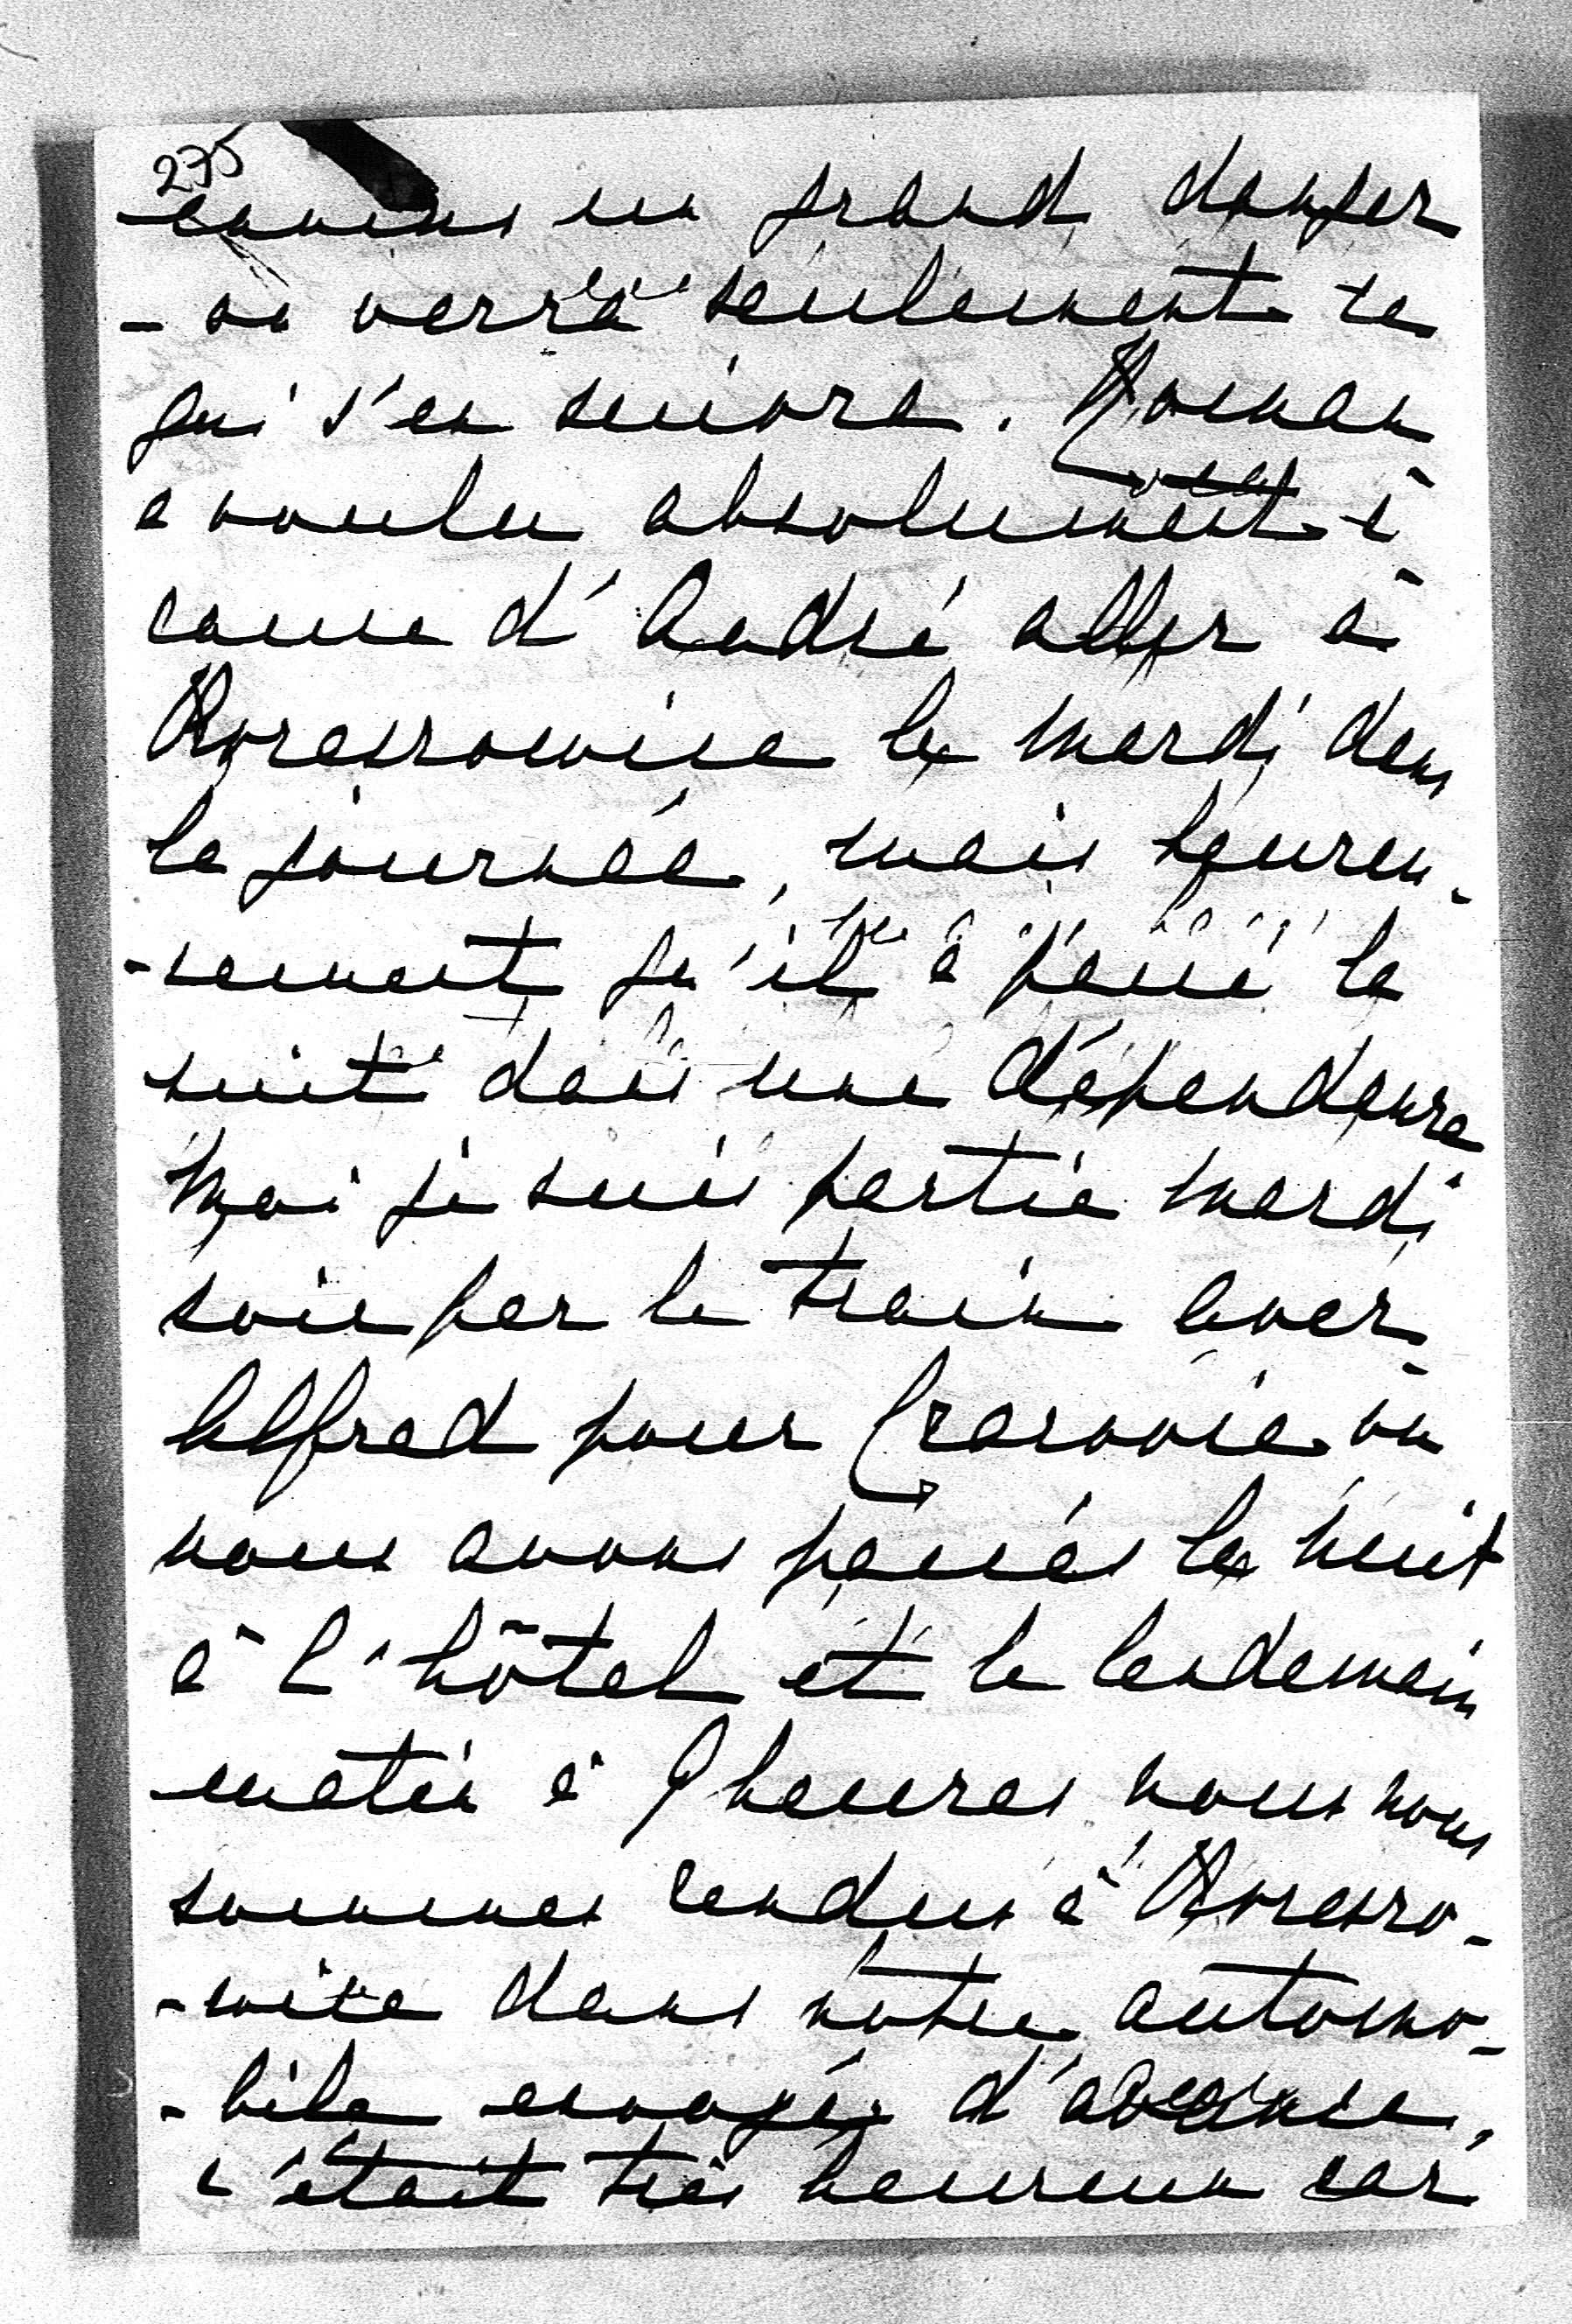 275
courons un grand danger
- on verra seulement ce
qui s'en suivra. Roman
a voulu absolument à
cause d'André aller à
Kreszowice le mardi dans
la journée, mais heureu-
-sement qu'il a passé la
nuit dans une dépendance
Moi je suis partie mardi
soir par le train avec
Alfred pour Cracovie où
nous avons passés la nuit
à l'hôtel et le lendemain
matin à 9 heures nous nous
sommes rendus à
-wice dans notre automo-
-bile envoyée d'avance,
c'était très heureux car